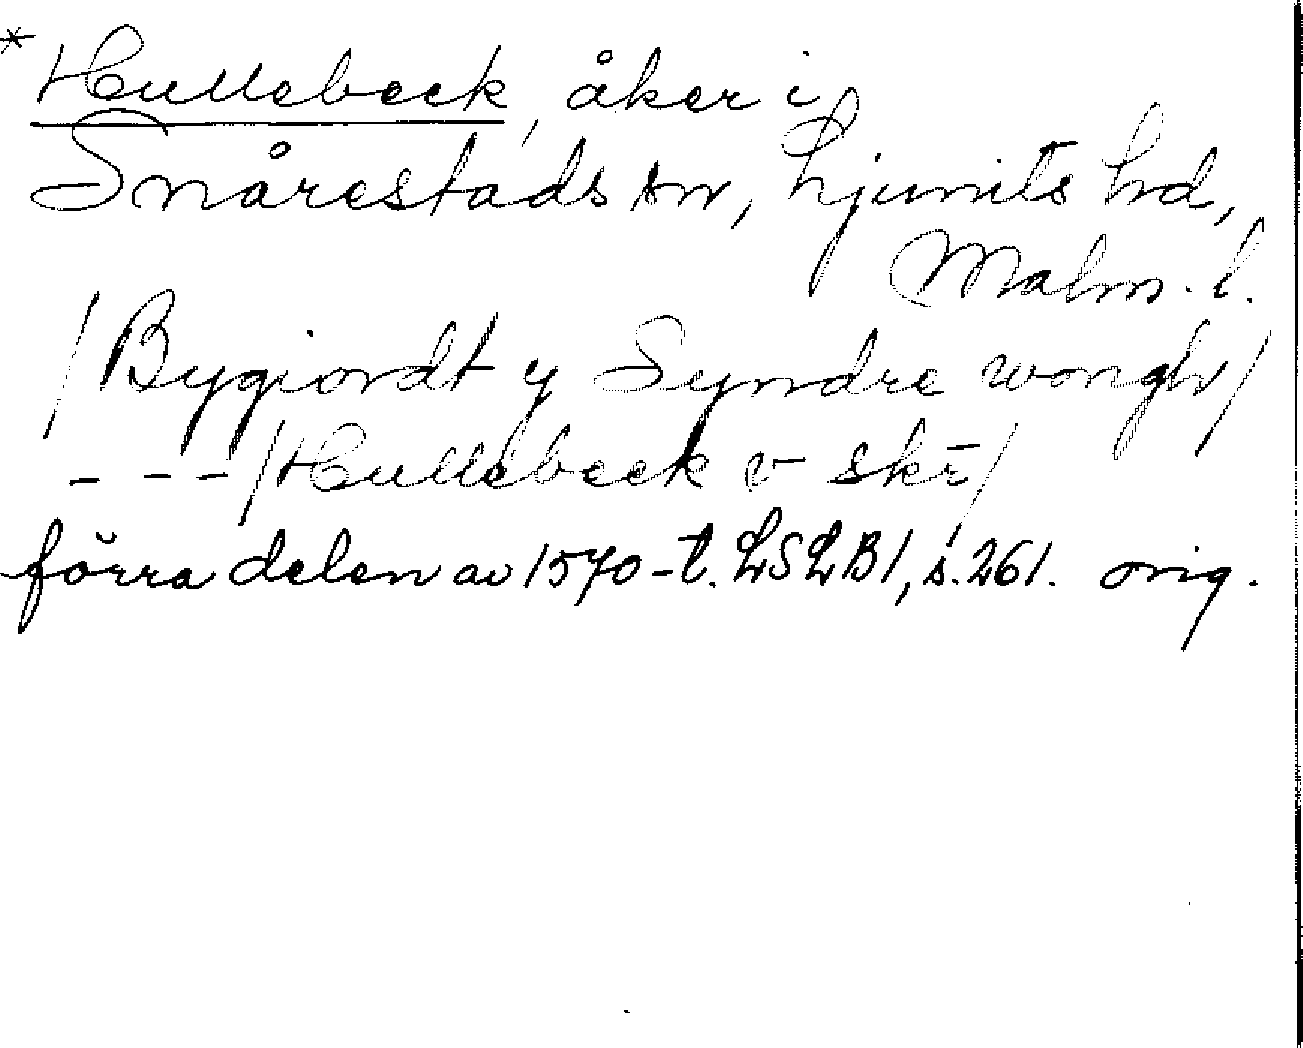 *Hullebeck, åker i
Snårestads sn, Ljunits hd,
Malm. l.
/Bygiordt y Syndre wongh/
- - - /Hullebeck v skr̄/
förra delen av 1570-t. LSLB1, s. 261. orig.